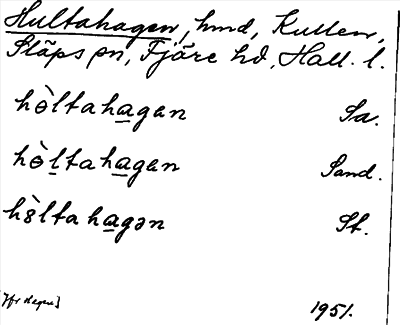 Hultahagen, hmd, Kullen,
Släps sn, Fjäre hd, Hall. l.
hò̵ltahagen Sa.
hò̵ltahagen Sand.
hò̵ltahagən St.
1951.